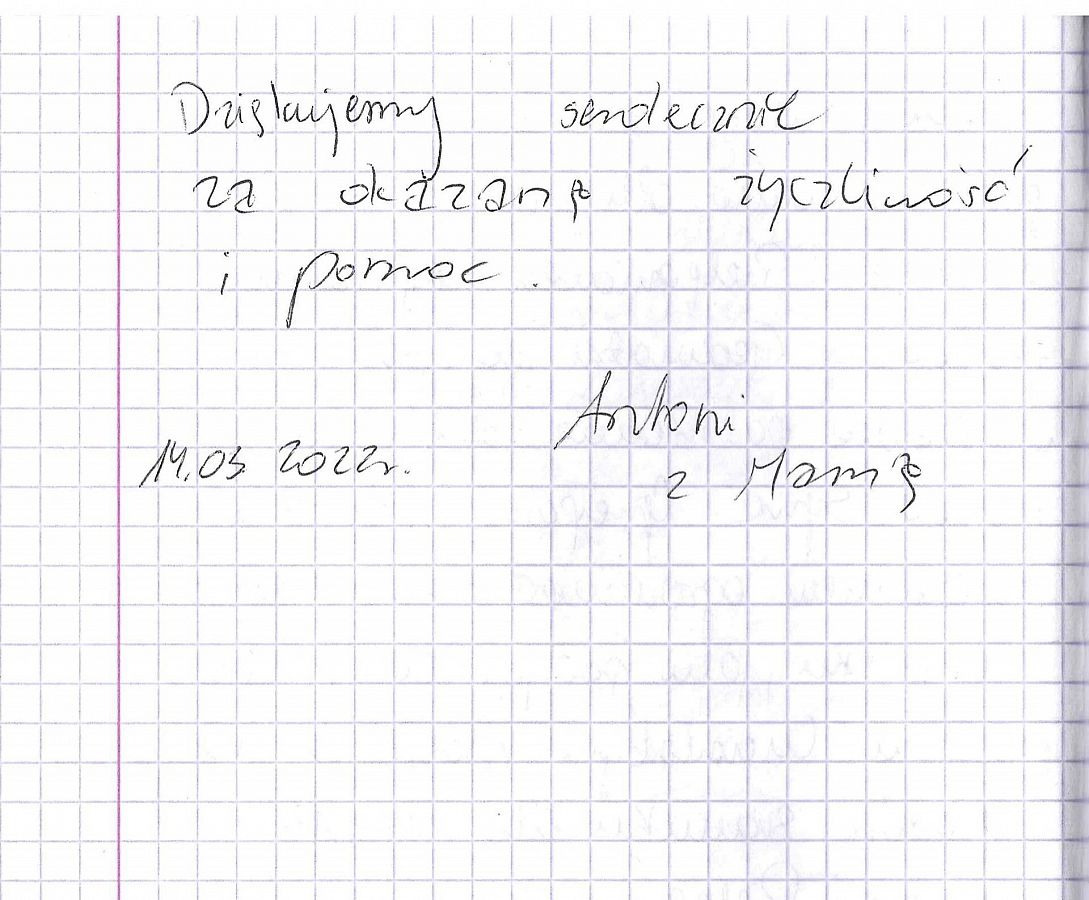 Dziękujemy serdecznie
za okazaną życzliwość
i pomoc.
Antoni
14.03.2022r.
z Mamą